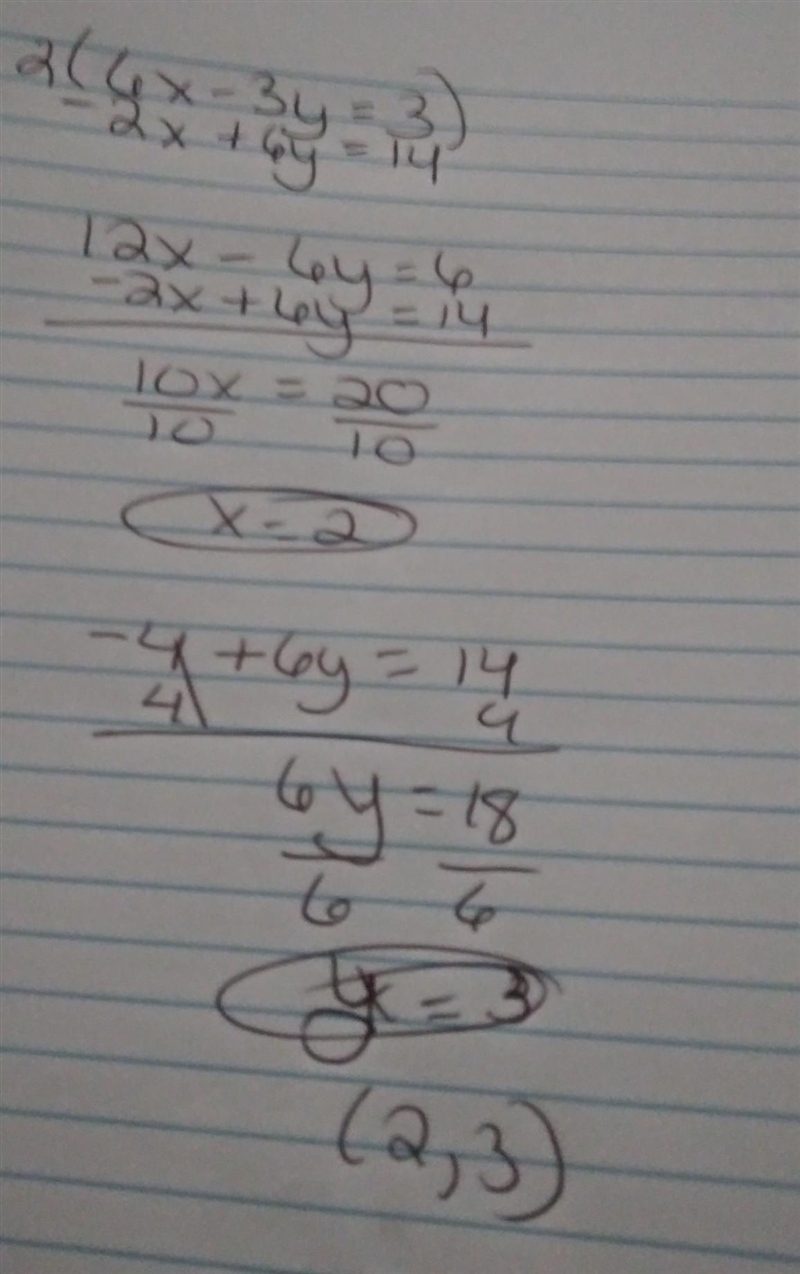 2(6x - 3y = 3)
-2x + 6y = 14
12x - 6y = 6
-2x + 6y = 14
10x = 20
10 10
x = 2
-4 + 6y = 14
4 4
6y = 18
6 6
y = 3
(2,3)